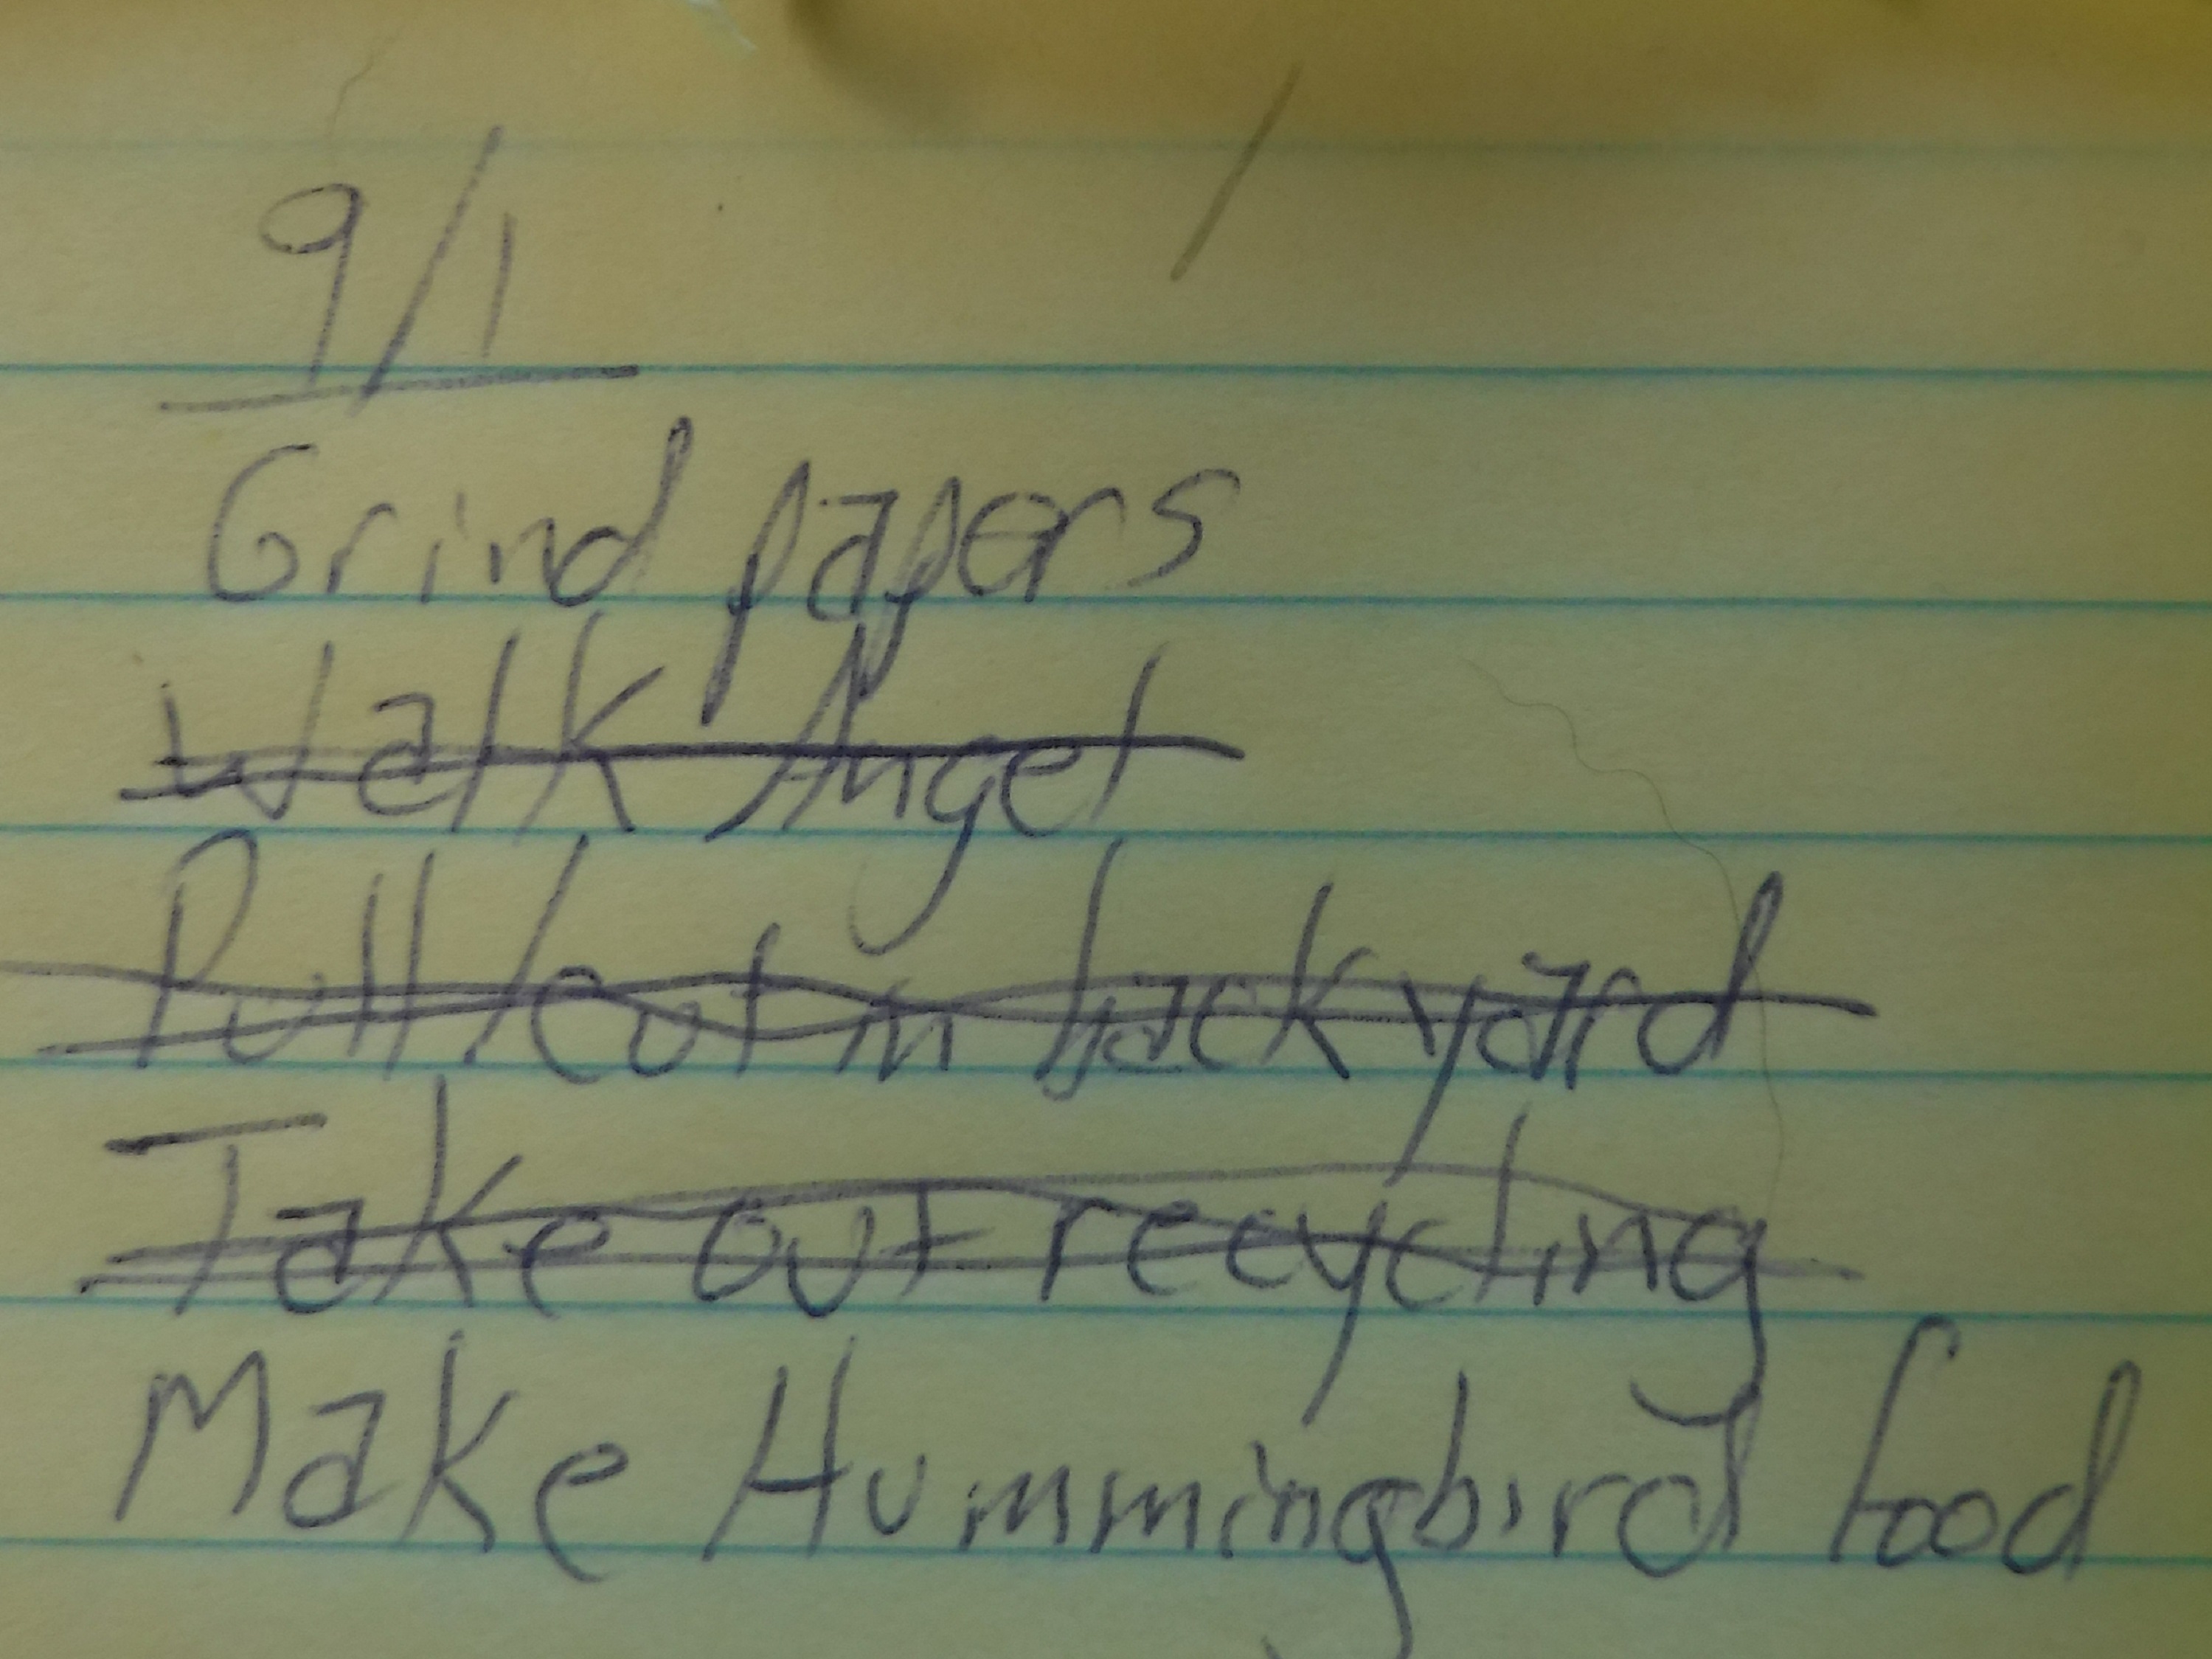 9/1
Grind papers
Walk Angel
Pull / cut in back yard
Take out recycling
Make Hummingbird food